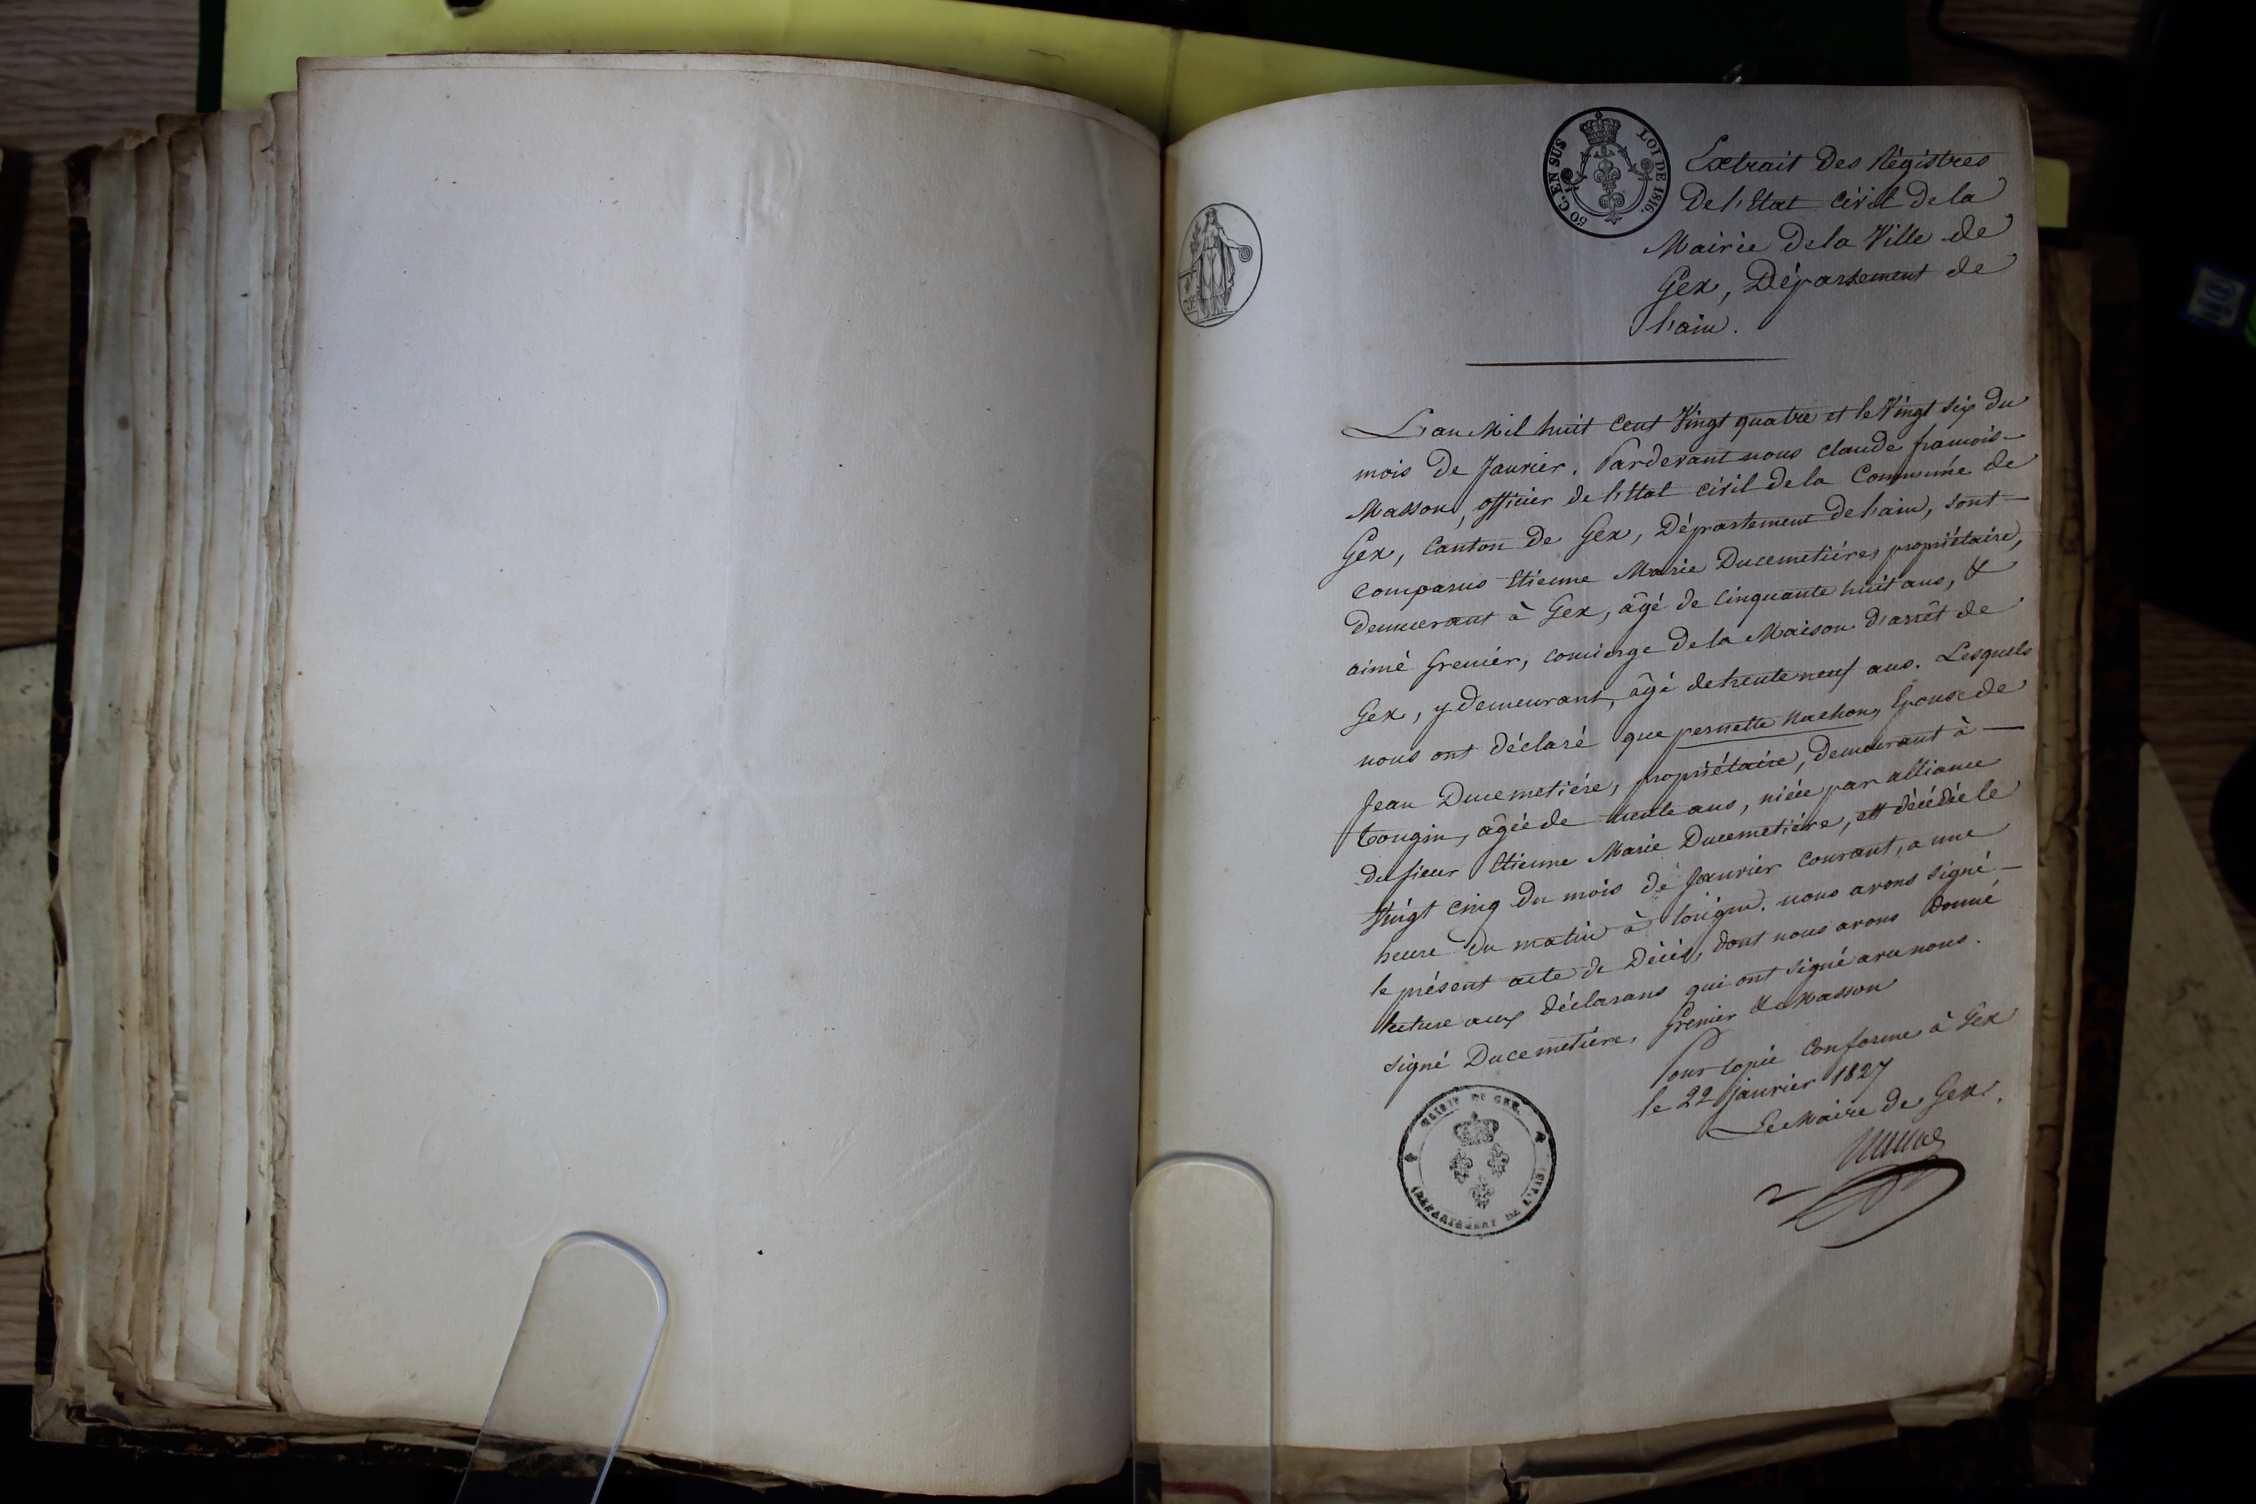 50 C. EN SUS LOI DE 1816.
Extrait des Régistres
De l'Etat civil de la
Mairie de la Ville de
Gex, Département de
l'ain.
L'an Mil huit cent Vingt quatre et le Vingt six du
mois de Janvier. Pardevant nous claude francois
Masson, officier de l'Etat civil de la Commune de
Gex, Canton de Gex, Département de l'ain, sont
comparus Etienne Marie Ducemetiére, propriétaire,
demeurant à Gex, âgé de cinquante huit ans, &
aimé Grenier, concierge de la Maison d'arrêt de
Gex, y demeurant, âgé de trente neuf ans. Lesquels
nous ont déclaré que pernette Nachon, Epouse de
Jean Ducemetiére, propriétaire, demeurant à
tougin, âgée de trente ans, niéce par alliance
du sieur Etienne Marie Ducemetiére, est décédée le
Vingt cinq du mois de Janvier courant, a une
heure du matin à tougin. nous avons signé
le présent acte de Décès, dont nous avons donné
lecture aux déclarans qui ont signé avec nous.
signé Ducemetiére, Grenier & Masson
Pour copie conforme à Gex
le 22 janvier 1827
Le Maire de Gex.
MAIRIE DE GEX.
DEPARTEMENT DE L'AIN